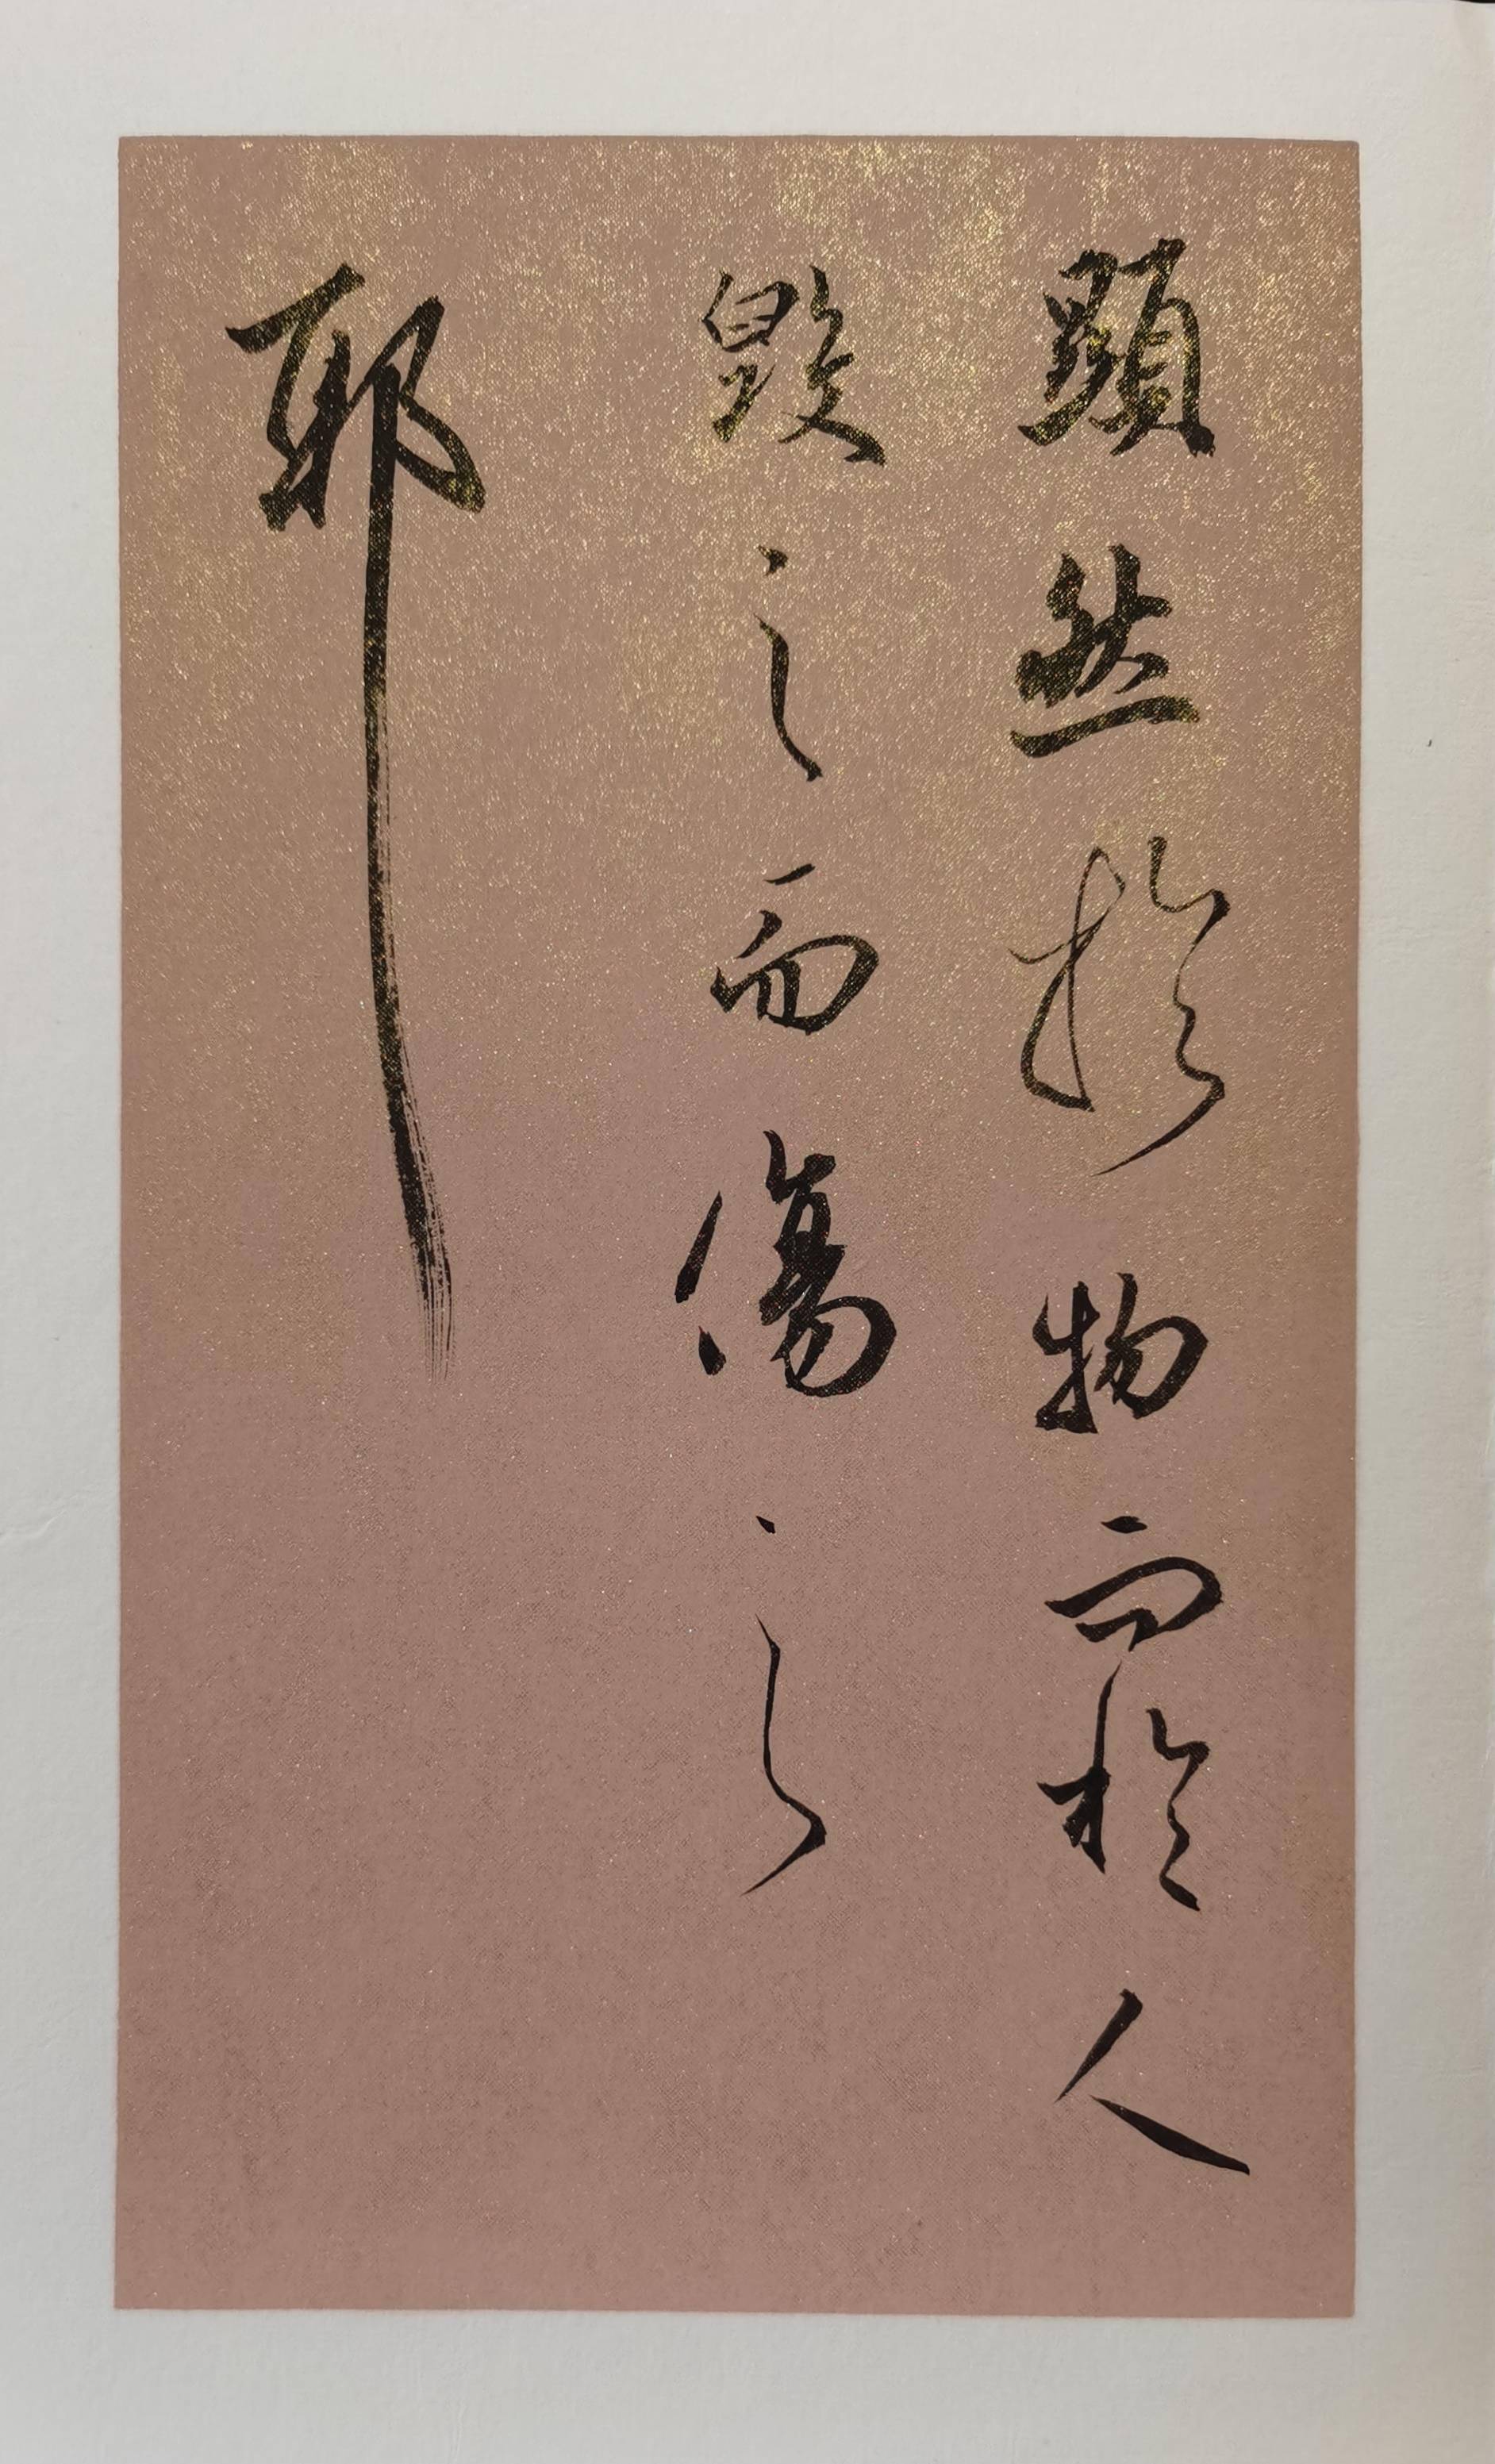 顯然於物而於人
毀之而傷之
耶